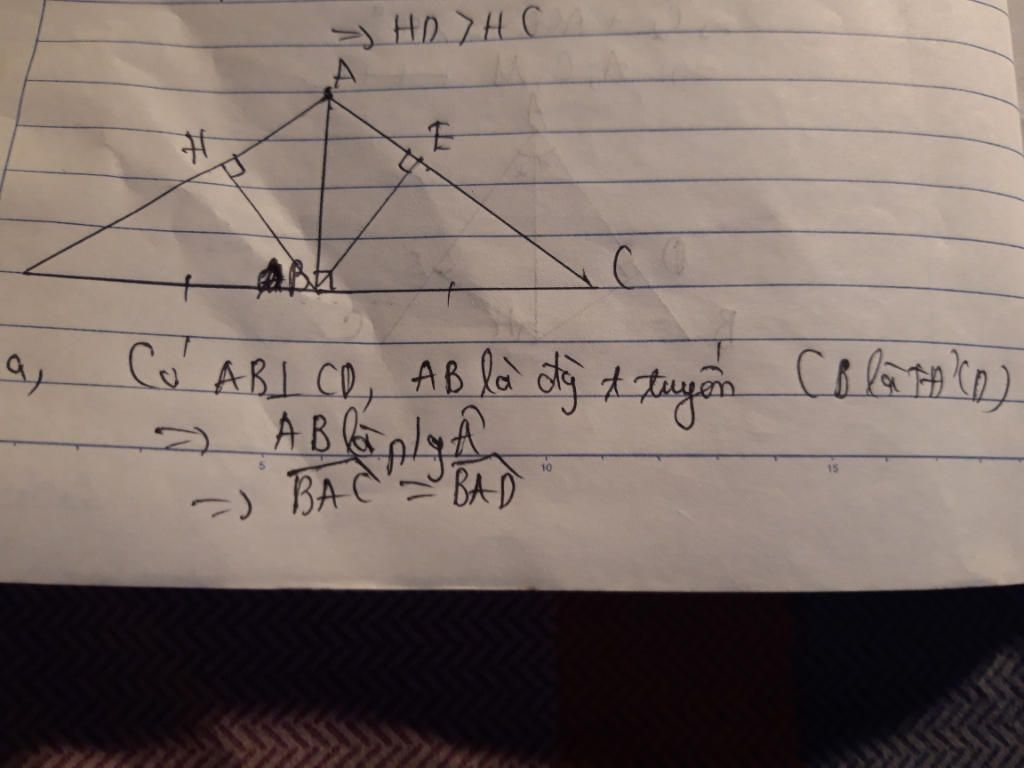 => HD > HC
A
H
E
B
C
a, Có AB⊥CD, AB là đg t tuyến (B là TĐ CD)
=> AB là p/g Â
=> BAC = BAD
5 10 15